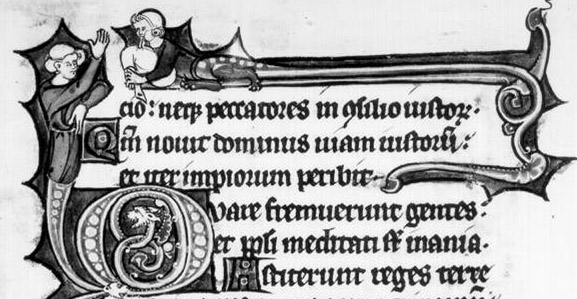 cio: neqꝫ peccatores in ꝯsilio iustoꝝ.
Qm̄ nouit dominus uiam iustoꝝ̄:
et iter impiorum peribit.
Quare fremuerunt gentes:
et ppli meditati s̄t inania.
Astiterunt reges terre